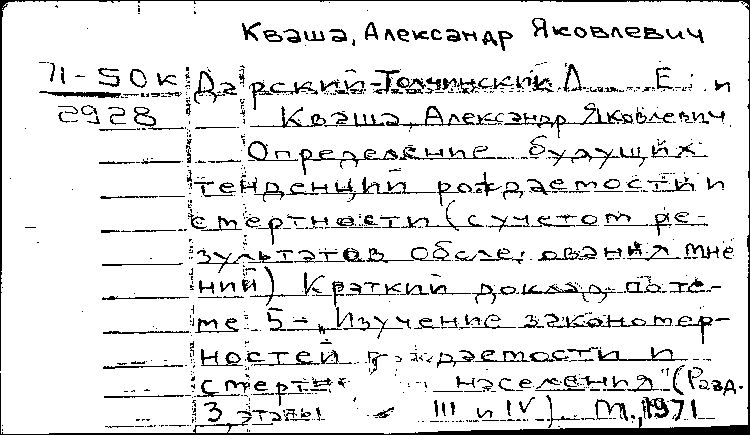 Кваша, Александр Яковлевич
71-50к Дарский-Толчинский Л. Е. и
2928 Кваша, Александр Яковлевич
Определение будущих
тенденций рождаемости и
смертности (с учетом ре-
зультатов обследования мне
ний) Краткий доклад по те-
ме 5- "Изучение закономер-
ностей рождаемости и
смертн населения" (Разд.
3, этапы III и IV). М., 1971